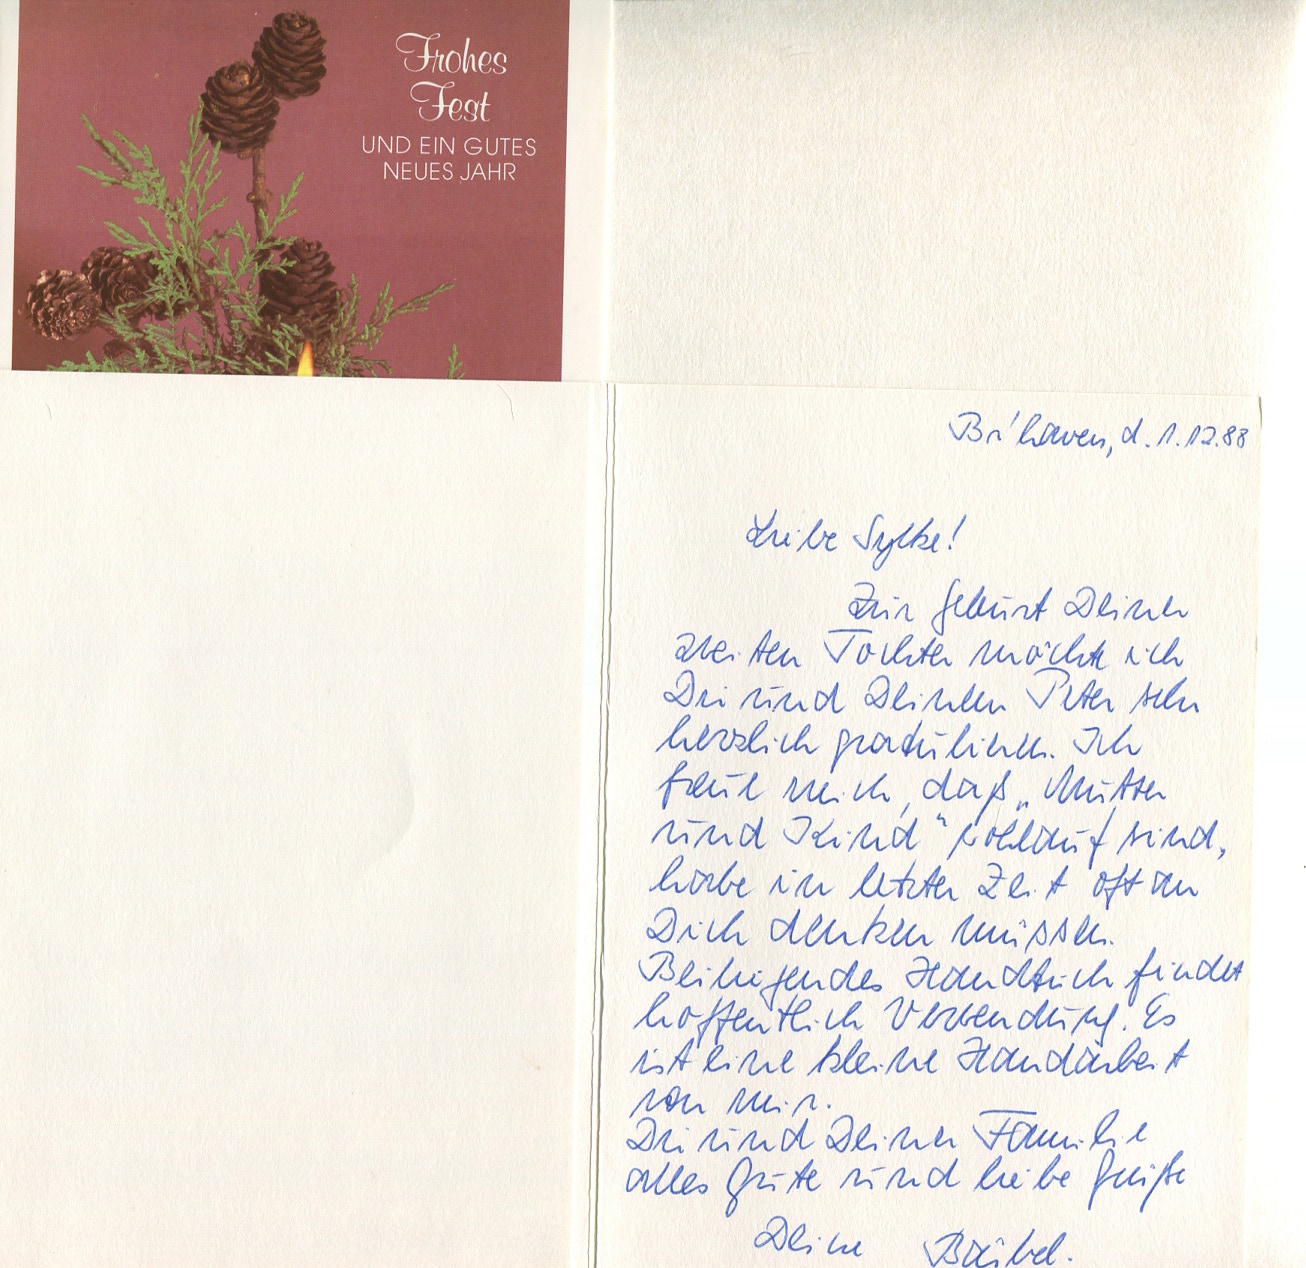 Frohes
Fest
UND EIN GUTES
NEUES JAHR
Br'haven, d. 1.12.88
Liebe Sylke!
Zur Geburt Deiner
zweiten Tochter möchte ich
Dir und Deinem Peter sehr
herzlich gratulieren. Ich
freue mich, daß „Mutter
und Kind“ wohlauf sind,
habe in letzter Zeit oft an
Dich denken müssen.
Beiliegendes Handtuch findet
hoffentlich Verwendung. Es
ist eine kleine Handarbeit
von mir.
Dir und Deiner Familie
alles Gute und liebe Grüße
Deine Bärbel.